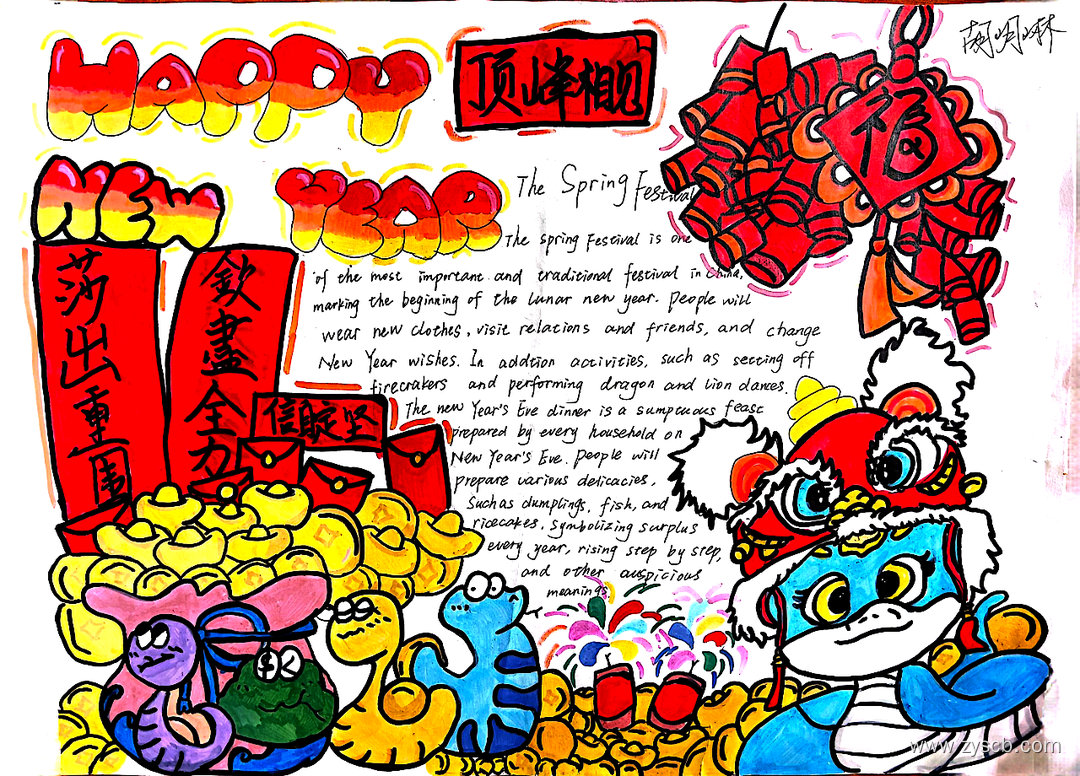 HAPPY
顶峰相见
福
NEW
YEAR
The Spring Festival
莎出重围
欽盡全力
信聢坚
The spring Festival is one
of the most important and traditional festival in china,
marking the beginning of the lunar new year. People will
wear new clothes, visit relations and friends, and change
New Year wishes. In addtion activities, such as setting off
firecrakers and performing dragon and lion dances.
The new Year's Eve dinner is a sumpcuous feast
prepared by every household on
New Year's Eve. people will
prepare various delicacies,
Such as dumplings, fish, and
ricecakes, symbolizing surplus
every year, rising step by step,
and other auspicious
meanings
www.zyscb.com